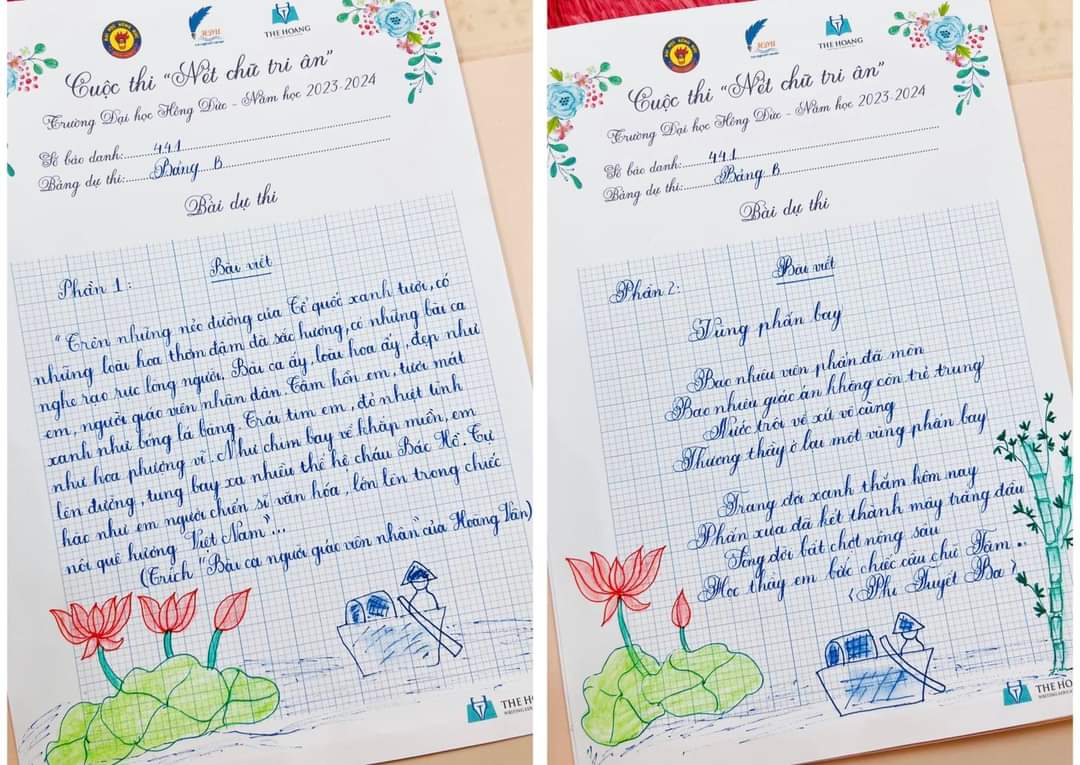 THE HOANG
Cuộc thi "Nét chữ tri ân"
Trường Đại học Hồng Đức - Năm học 2023-2024
Số báo danh: 441
Bảng dự thi: Bảng B
Bài dự thi
Phần 1: Bài viết
"Trên những nẻo đường của Tổ quốc xanh tươi, có
những loài hoa thơm đậm đà sắc hương, có những bài ca
nghe rạo rực lòng người. Bài ca ấy, loài hoa ấy, đẹp như
em, người giáo viên nhân dân. Tâm hồn em, tươi mát
xanh như bóng lá bàng. Trái tim em, đỏ nhiệt tình
như hoa phượng vĩ. Như chim bay về khắp miền, em
lên đường, tung bay xa nhiều thế hệ cháu Bác Hồ. Tự
hào như em người chiến sĩ văn hóa, lớn lên trong chiếc
nôi quê hương Việt Nam"...
(Trích "Bài ca người giáo viên nhân" của Hoàng Vân)
THE HOANG
THE HOANG
Cuộc thi "Nét chữ tri ân"
Trường Đại học Hồng Đức - Năm học 2023-2024
Số báo danh: 441
Bảng dự thi: Bảng B
Bài dự thi
Phần 2: Bài viết
Vùng phấn bay
Bao nhiêu viên phấn đã mòn
Bao nhiêu giáo án không còn trẻ trung
Nước trôi về xứ vô cùng
Thương thầy ở lại một vùng phấn bay
Trang đời xanh thắm hôm nay
Phấn xưa đã kết thành mây trắng đầu
Sông đời bất chợt nông sâu
Học thầy em bắc chiếc cầu chữ Tâm..
(Phi Tuyết Ba)
THE HO